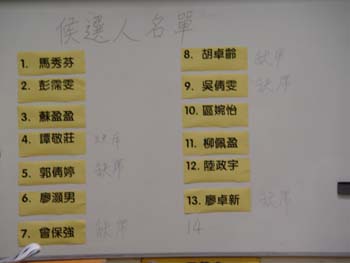 候選人名單
1. 馬秀芬
2. 彭霈雯
3. 蘇盈盈
4. 譚敬莊 缺席
5. 郭倩婷 缺席
6. 廖灝男
7. 曾保強 缺席
8. 胡卓齡 缺席
9. 吳倩雯 缺席
10. 區婉怡
11. 柳佩盈
12. 陸政宇
13. 廖卓新 缺席
14